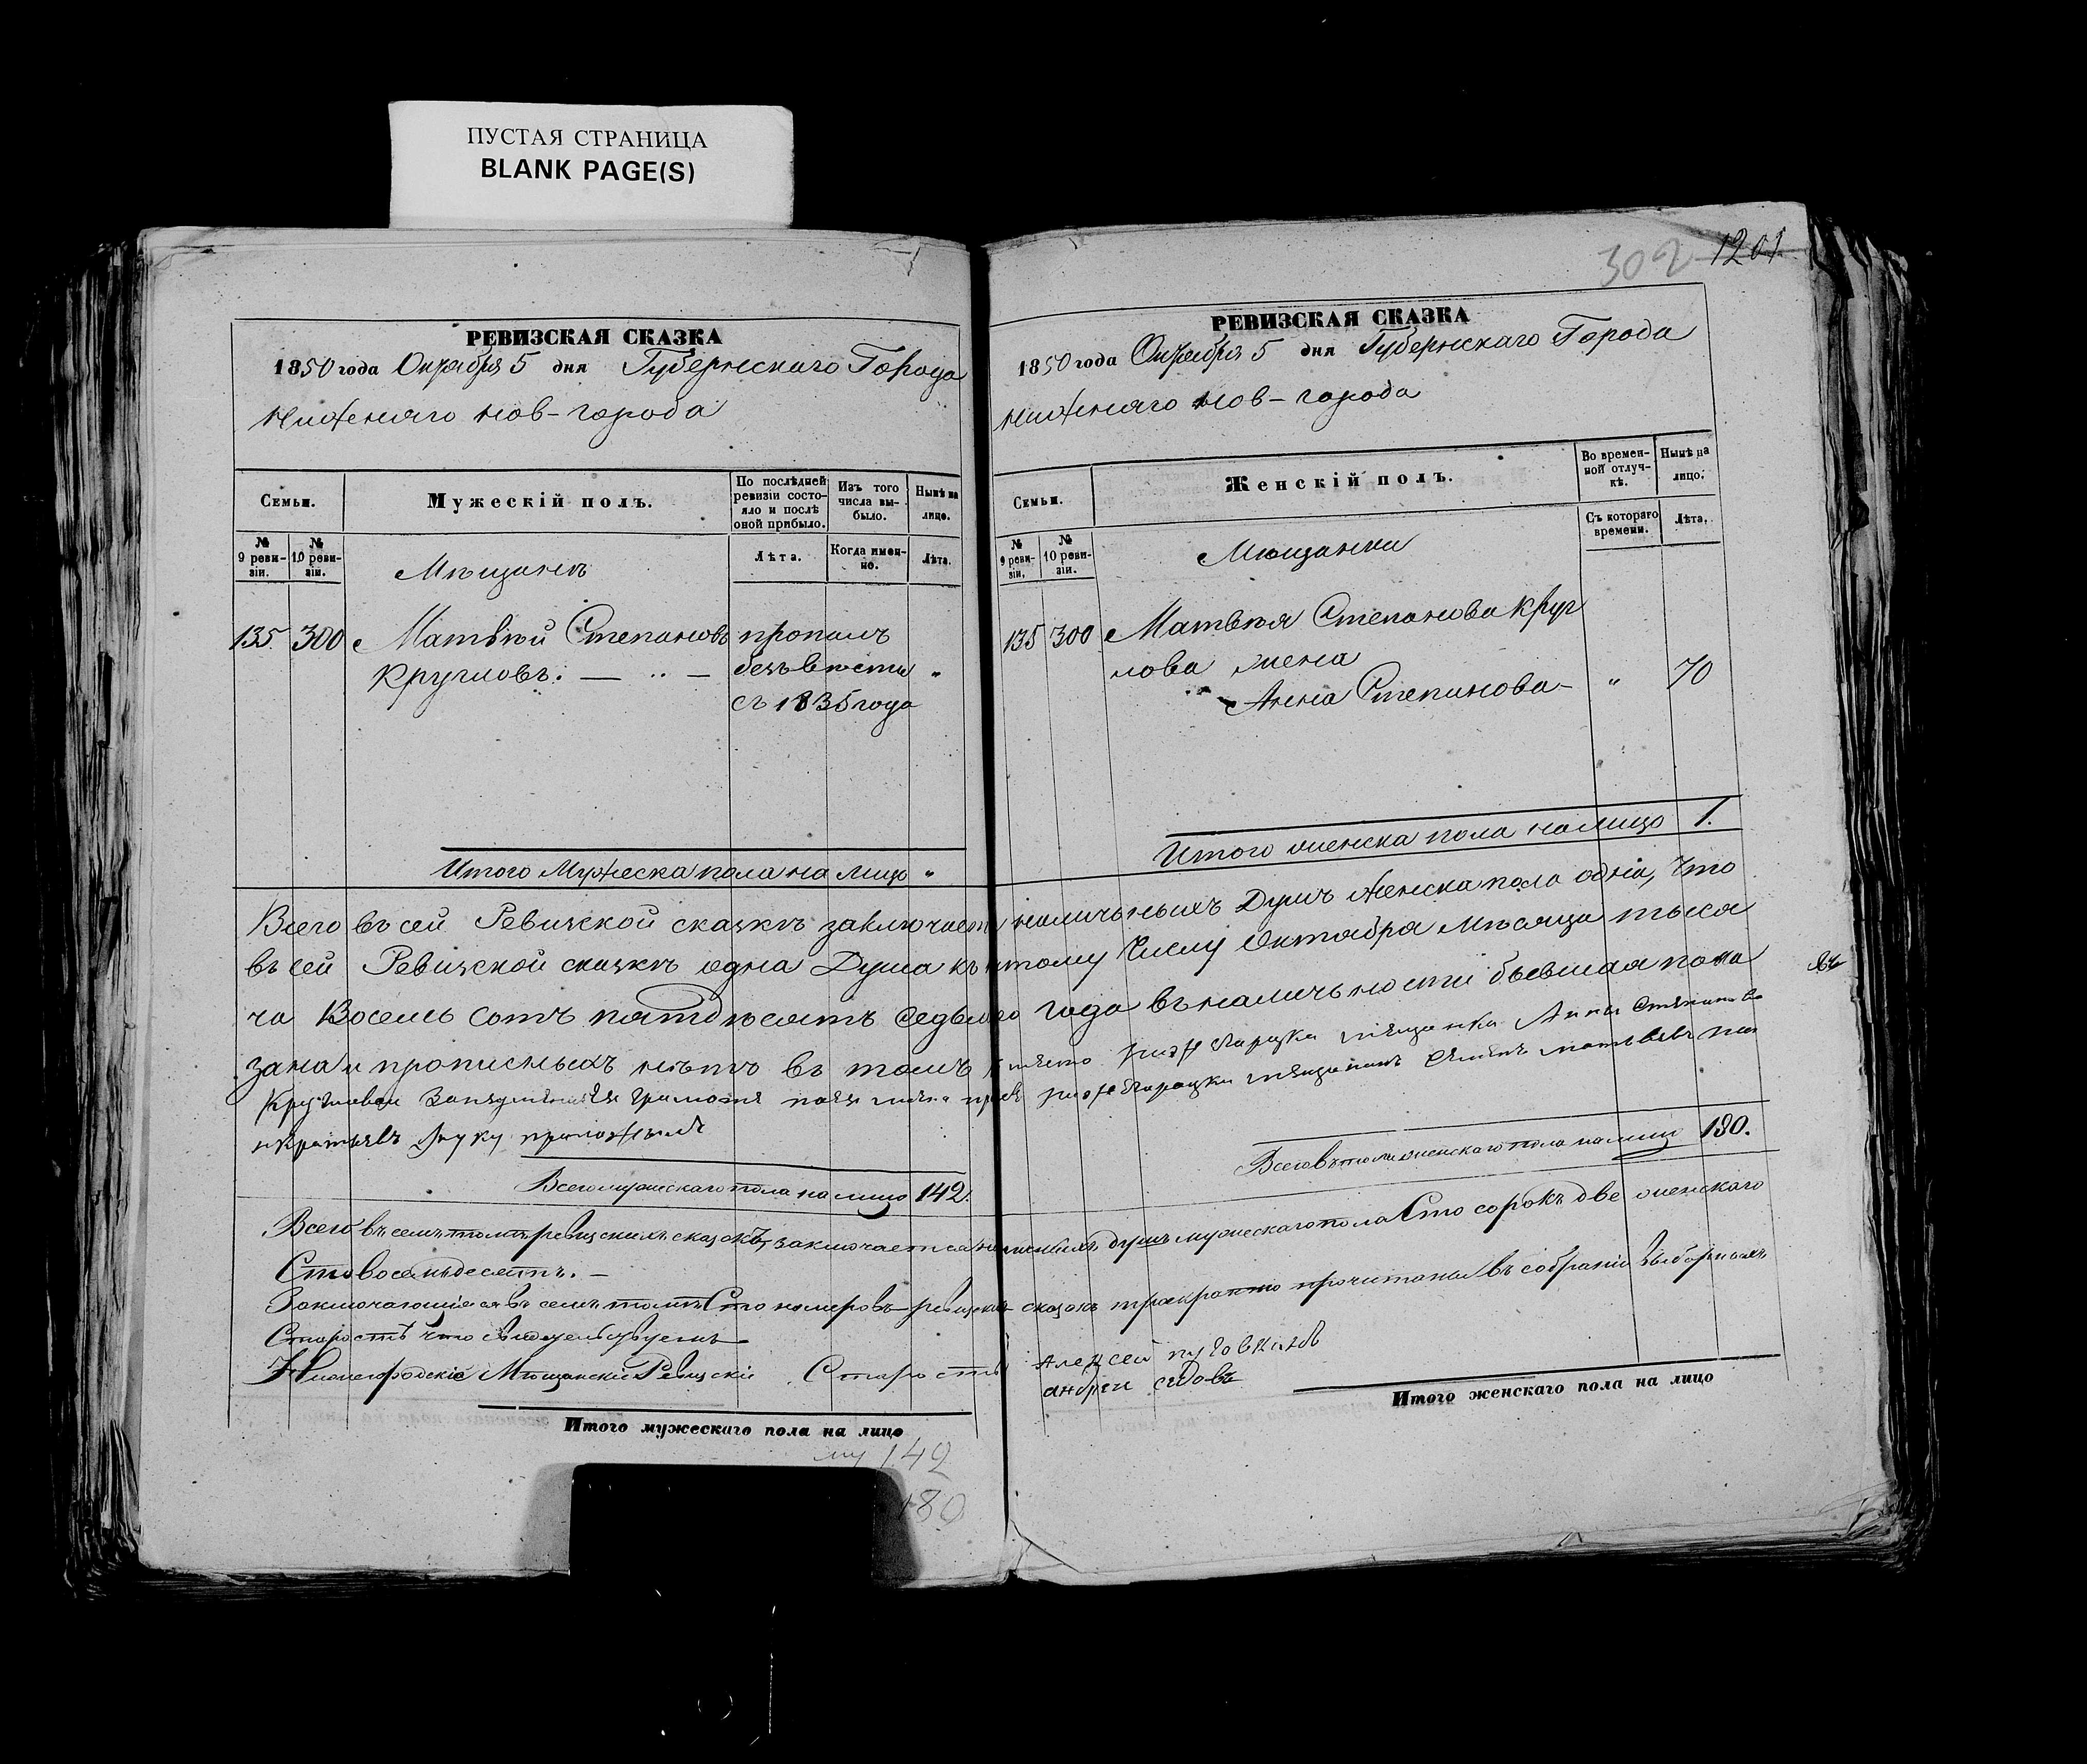 ПУСТАЯ СТРАНИЦА
BLANK PAGE(S)
РЕВИЗСКАЯ СКАЗКА
1850 года Октября 5 дня Губернскаго Города
Нижняго Нов-города
Семьи.
Мужескій полъ.
По послѣдней ревизіи состояло и послѣ оной прибыло.
Изъ того числа выбыло.
Нынѣ на лицо.
№ 9 ревизіи.
№ 10 ревизіи.
Мѣщанинъ
Лѣта.
Когда именно.
Лѣта.
135. 300 Матвѣй Степановъ пропалъ
Кругловъ. — " — безъ вѣсти "
съ 1835 года
Итого Мужеска пола на лицо "
302 1201
РЕВИЗСКАЯ СКАЗКА
1850 года Октября 5 дня Губернскаго Города
Нижняго Нов-города
Семьи.
Женскій полъ.
Во временной отлучкѣ.
Нынѣ на лицо.
№ 9 ревизіи.
№ 10 ревизіи.
Мѣщанки
Съ котораго времени.
Лѣта.
135 300 Матвѣя Степанова Круг
лова жена
Анна Степанова — " 70
Итого женска пола на лицо 1.
Всего въ сей Ревизской сказкѣ заключается наличьныхъ Душъ Женска пола одна, Что
въ сей Ревизской сказкѣ одна Душа къ пятому Числу Октября Мѣсяца тыся
ча Восемь сотъ пятдѣсятъ седьмаго года въ наличьности бывшая пока
зана и прописныхъ нѣтъ въ томъ вмѣсто нижегарацкай мещанки Анны Степановай
Кругловай
руку приложилъ
Всего мужескаго пола на лицо 142.
Всего въ томѣ женскаго пола на лицо 180.
Всего въ семъ томѣ ревизскихъ сказокъ, заключается наличныхъ душъ мужескаго пола Сто сорокъ две женскаго
Сто восемьдесятъ. —
Заключающіеся въ семъ томѣ Сто номеровъ ревизскихъ сказокъ троекратно прочитаны въ собраніи выборныхъ
Старостъ что свидѣтельствуемъ
Нижегородскіе Мѣщанскіе Ревизскіе Старосты Алексей пуговкинъ
андрей седовъ
Итого мужескаго пола на лицо
Итого женскаго пола на лицо
му 142
180